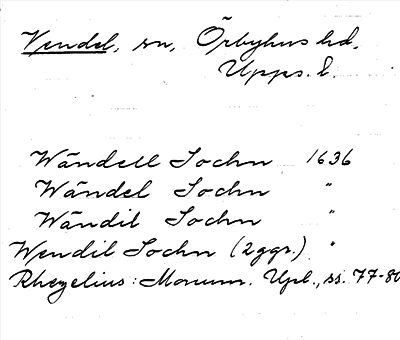 Vendel, sn, Örbyhus hd,
Upps. l.
Wändell Sochn 1636
Wändel Sochn "
Wändil Sochn "
Wendil Sochn (2ggr.) "
Rhezelius: Monum. Upl., ss. 77-80